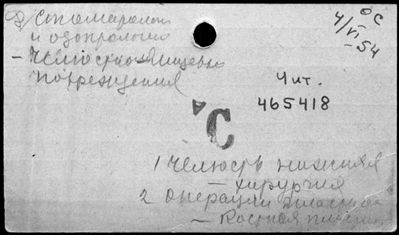 2) Стоматология
и одонтология
– Челюстно-лицевые
повреждения
ОС
4/VI
–54
Чит.
465418
С
1 Челюсть нижняя
– хирургия
2 Операции пластич
– Костная пласти